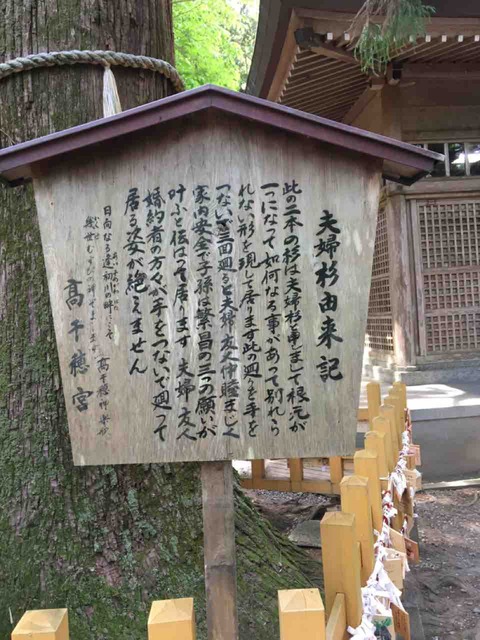 夫婦杉由来記
此の二本の杉は夫婦杉と申しまして根元が
一つになって如何なる事があっても別れら
れない形を現して居ります此の廻りを手を
つないで三回廻ると夫婦友人仲睦まじく
家内安全で子孫は繁昌の三つの願いが
叶ふと伝はって居ります 夫婦、友人
婚約者の方々が手をつないで廻って
居る姿が絶えません
高千穂神楽歌
日向なる逢初川の畔にこそ
幾世むすびの神ぞまします
高千穂宮